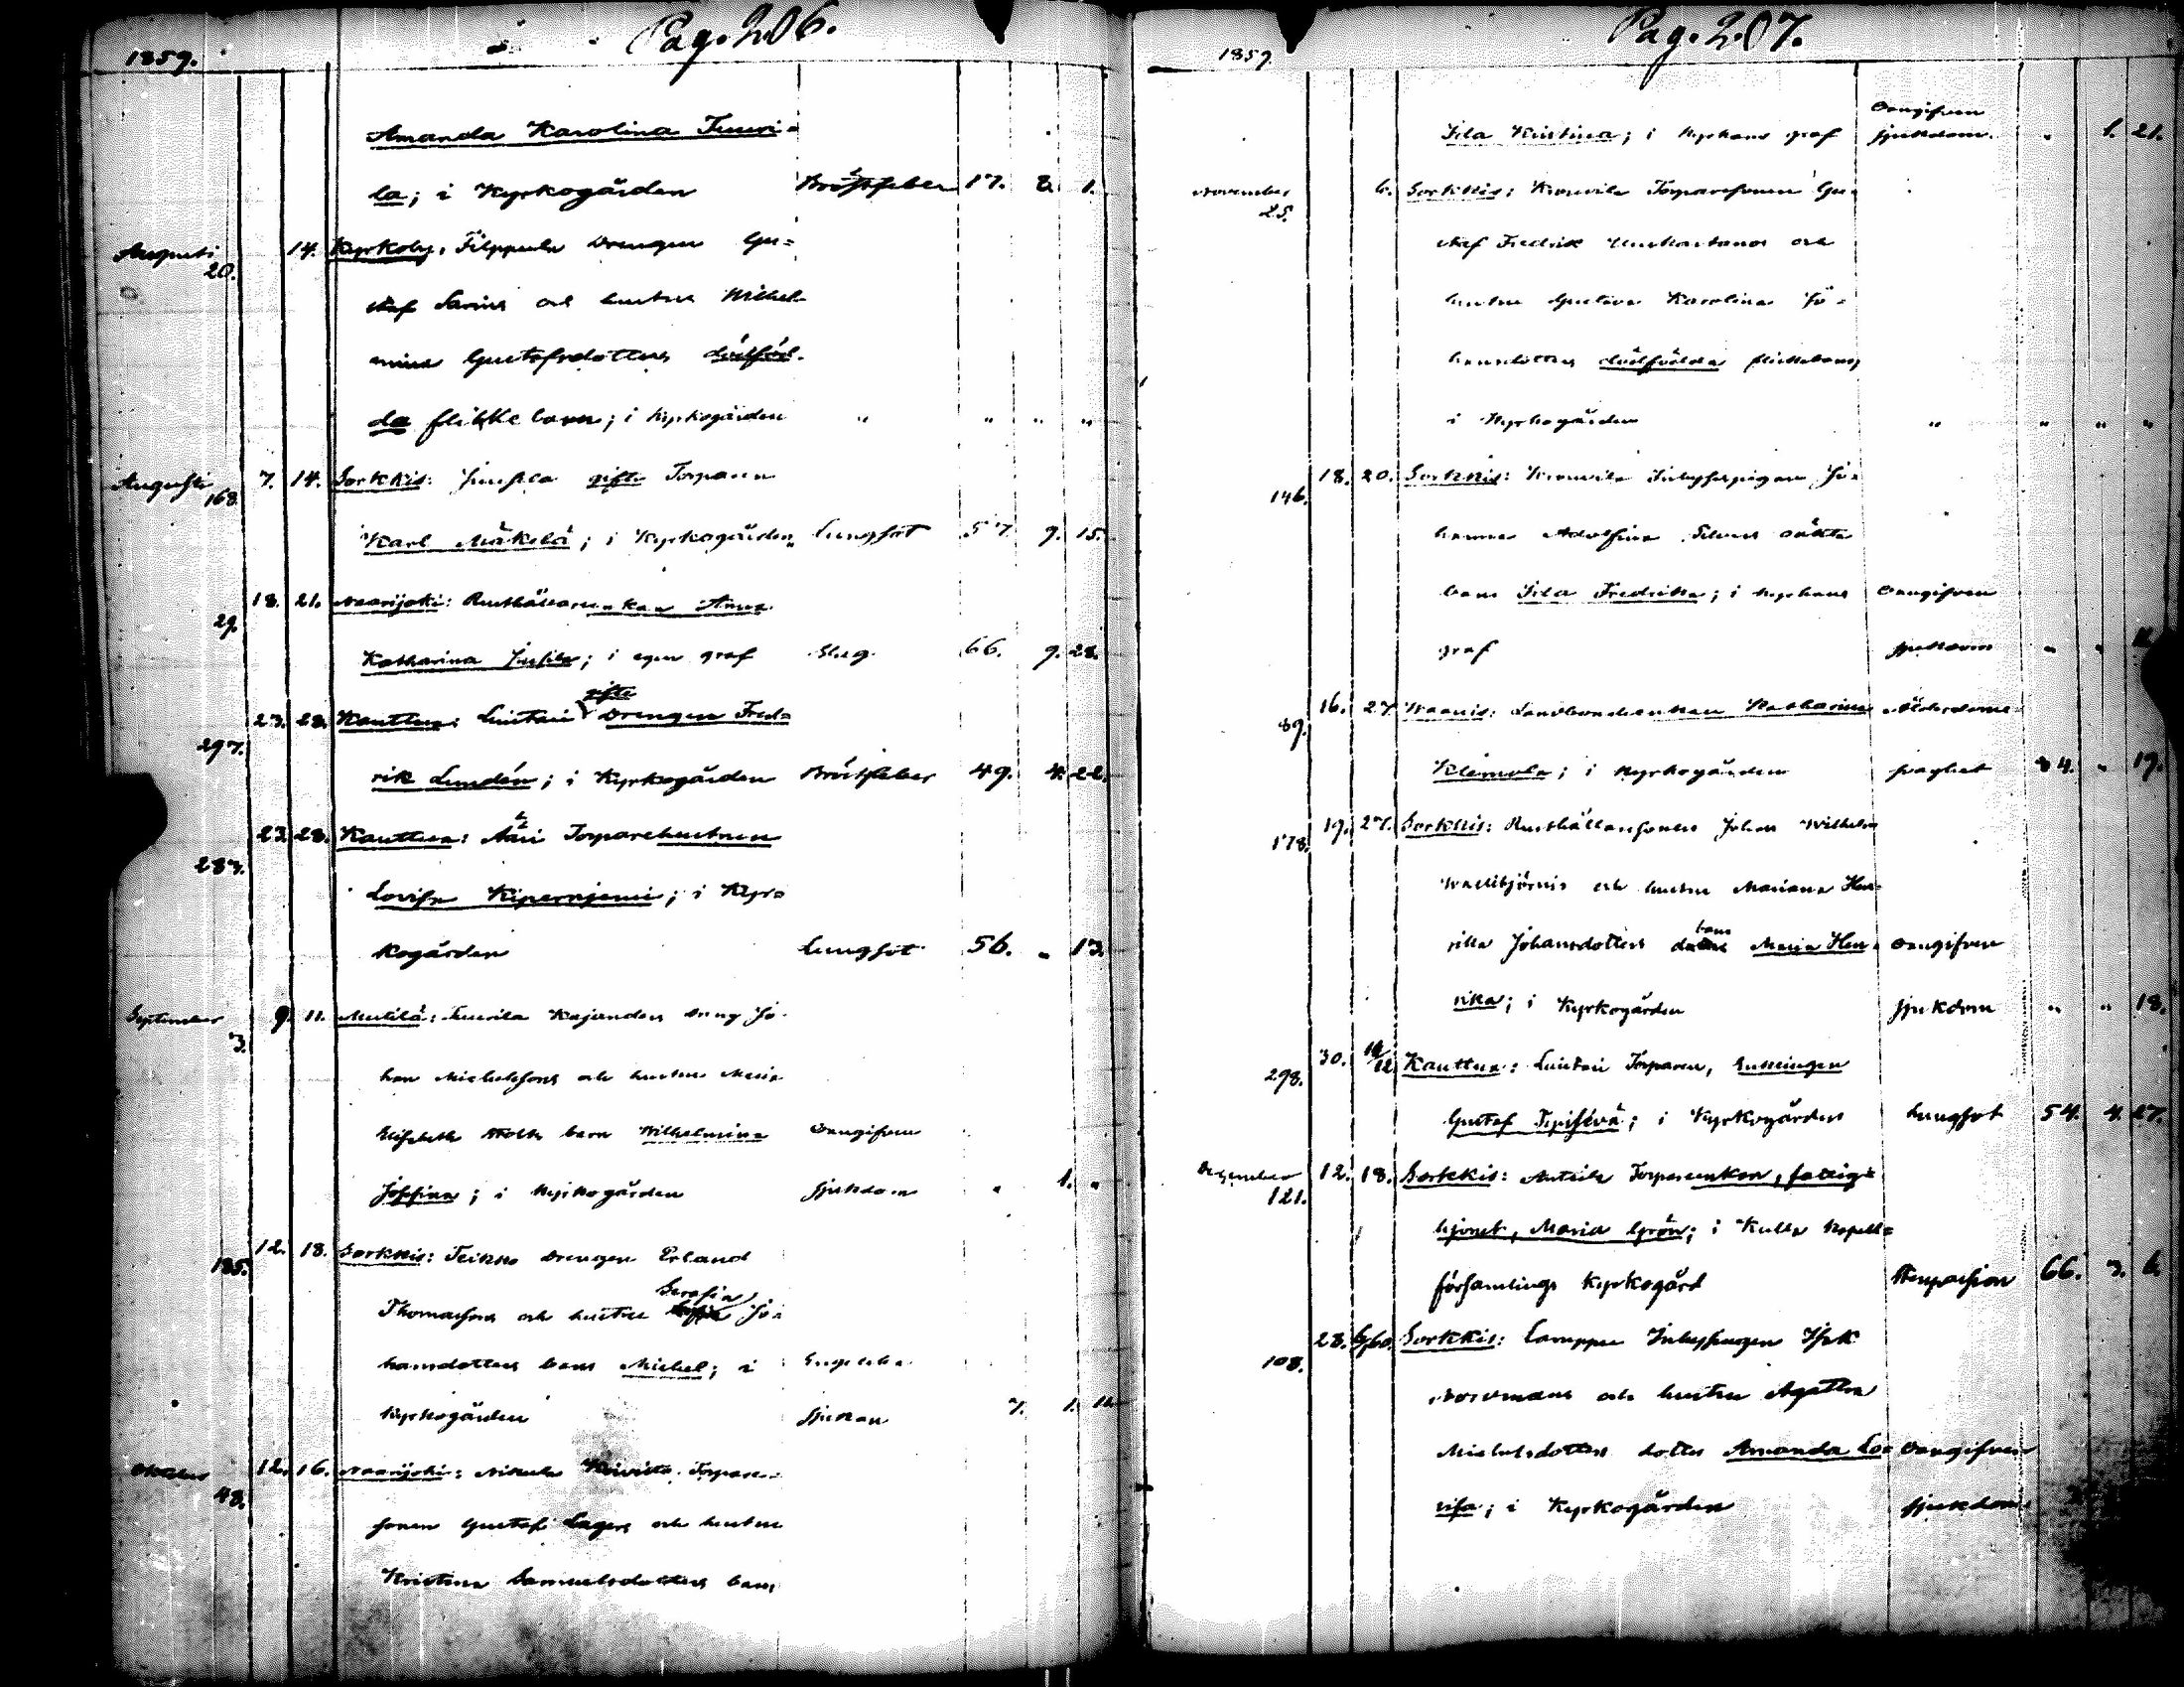 Pag. 206.
1859.
Amanda Karolina Tuuri=
la; i Kyrkogården Bröstfeber 17. 8. 1.
Augusti 20. 14. Kyrkoby: Filppula Drengen Gu=
staf Sarins och hustrus Wilhel-
mina Gustafsdotters dödföd-
da flikke barn; i Kyrkogården " " " "
Augusti 168. 7. 14. Sorkkis: Jussila gifte Torparen
Karl Mäkelä; i Kyrkogården Lungsot 57 9. 15.
29. 18. 21. Naarijoki: Rusthållareenkan Anna
Katharina Jussila; i egen graf Slag 66. 9. 28.
gifte
297. 23. 28. Kauttua: Luistari Drengen Fred=
rik Lundén; i Kyrkogården Bröstfeber 49. 4. 22.
283. 23. 28. Kauttua: Torparehustrun
Lovisa Kipernjemi; i Kyr=
kogården Lungsot 56. " 13.
September 3. 9. 11. Mestilä: Tuurila Kajanders Jo-
han Michelssons och hustrus Maria
Elisabeth barn Wilhelmina Oangifven
Josefina; i Kyrkogården sjukdom " 1. "
185. 12. 18. Sorkkis: Teikko Drengen Erland
Serafia
Thomassons och hustru Jo=
hansdotters barn Michel; i Engelska
Kyrkogården sjukan 7. 1. 11.
Oktober 48. 12. 16. Naarijoki: Nikula Torpare-
sonen Gustaf Lagers och hustru
Kristina Samuelsdotters barn
Pag. 207.
1859
Oangifven
Ida Kristina; i Kyrkans graf sjukdom. " 1. 21.
November 25. 6. Sorkkis: Krouvila Torparesonen Gu=
staf Fredrik och
hustru Gustava Karolina Jo=
hansdotters dödfödda flickebarn;
i Kyrkogården " " " "
146. 18. 20. Sorkkis: Krouvila Inhysespigan Jo=
hanna Adolfina oäkta
barn Ida Fredrika; i Kyrkans Oangifven
graf sjukdom " "
89. 16. 27. Landbondeenkan Katharina Ålderdoms=
Klemola; i Kyrkogården svaghet 84. " 19.
178. 19. 27. Sorkkis: Rusthållaresonen Johan Wilhelm
och hustru Mariana Hen=
barn
rika Johansdotters Maria Hen= Oangifven
rika; i Kyrkogården sjukdom " " 18.
298. 30. Kauttua: Luistari Torparen, Enklingen
Gustaf; i Kyrkogården Lungsot 54. 4. 27.
December 121. 12. 18. Sorkkis: Anttila Torpareenkan, fattig=
hjonet, Maria Grön; i Kulla Kapell=
församlings Kyrkogård 66. 3. 6.
108. 28. Sorkkis: Lamppu Inhysesdrengen Isak
Nordmans och hustru Agatha
Michelsdotters dotter Amanda Lo= Oangifven
visa; i Kyrkogården sjukdom